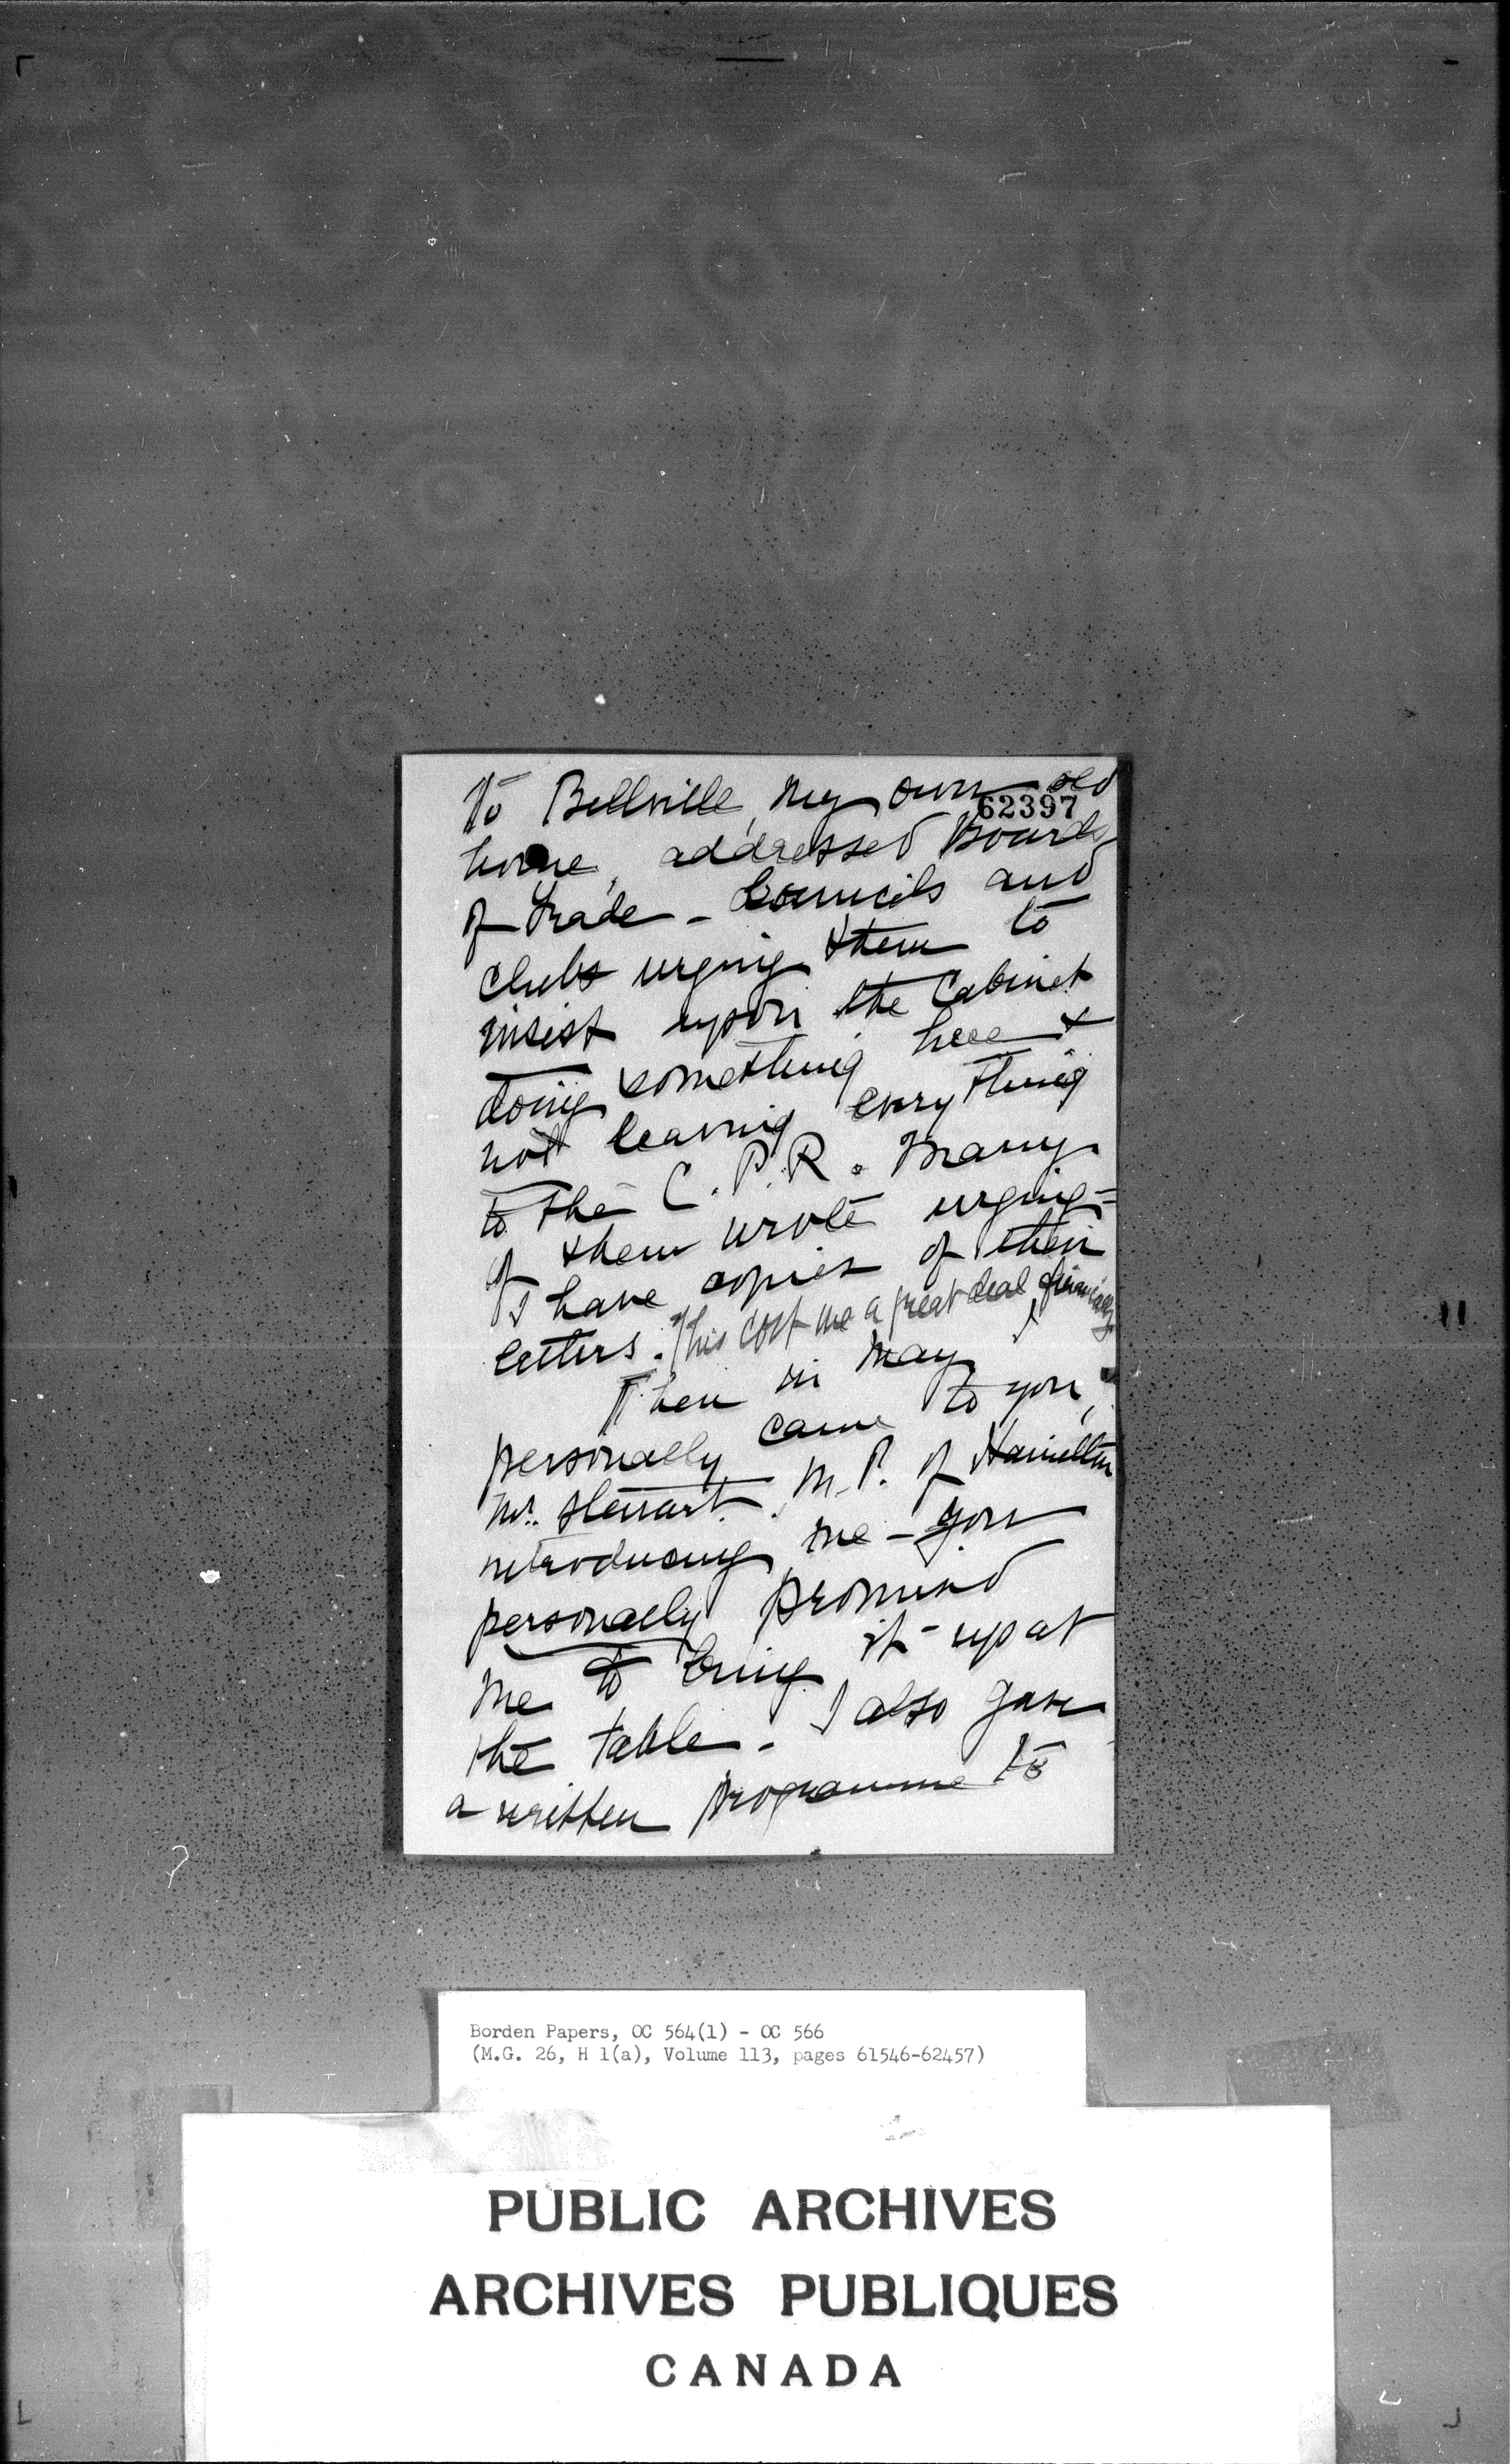 to Bellville, my own old
62397
home, addressed Boards
of Trade - Councils and
clubs urging them to
insist upon the Cabinet
doing something here &
not leaving everything
to the C.P.R. Many
of them wrote urging =
I have copies of their
letters. This cost me a great deal, financially
Then in May
personally came to you,
Mr. Stewart, M.P. of Hamilton
introducing me - you
personally promised
me to bring it up at
the table. I also gave
a written programme to
Borden Papers, OC 564(1) - OC 566
(M.G. 26, H 1(a), Volume 113, pages 61546-62457)
PUBLIC ARCHIVES
ARCHIVES PUBLIQUES
CANADA